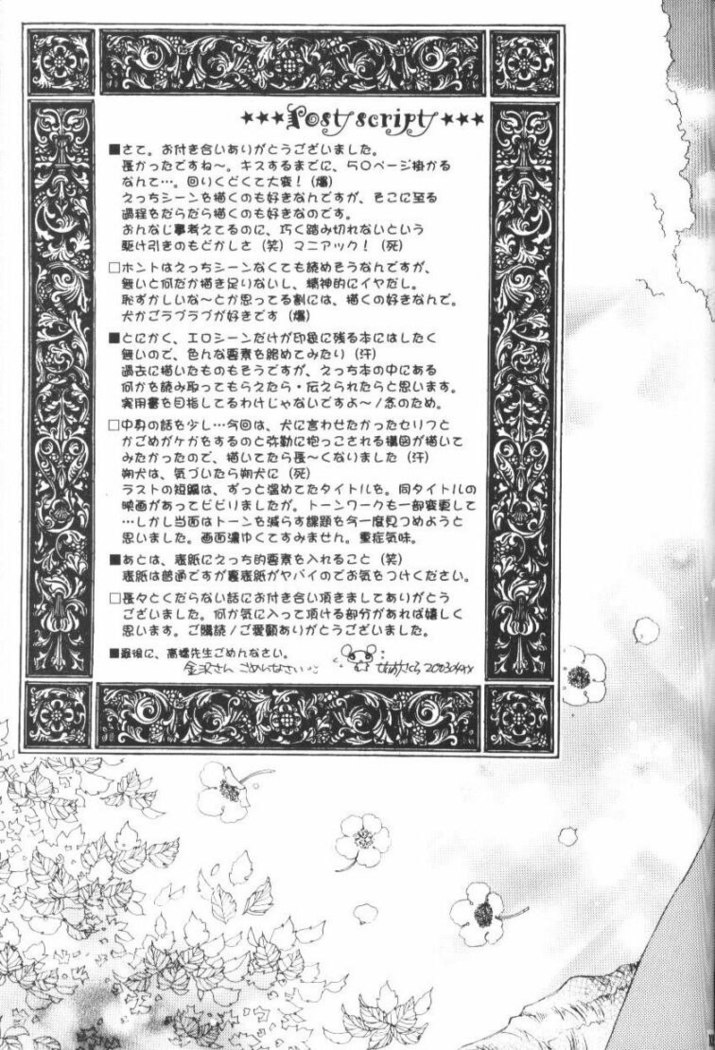 ★★★Post script★★★
■さて。お付き合いありがとうございました。
長かったですね〜。キスするまでに、50ページ掛かる
なんて…。回りくどくて大変！(爆)
えっちシーンを描くのも好きなんですが、そこに至る
過程をだらだら描くのも好きなのです。
おんなじ事考えてるのに、巧く踏み切れないという
駆け引きのもどかしさ(笑)マニアック！(死)
□ホントはえっちシーンなくても読めそうなんですが、
無いと何だか描き足りないし、精神的にイヤだし。
恥ずかしいな〜とか思ってる割には、描くの好きなんで。
犬かごラブラブが好きです(爆)
■とにかく、エロシーンだけが印象に残る本にはしたく
無いので、色んな要素を絡めてみたり(汗)
過去に描いたものもそうですが、えっち本の中にある
何かを読み取ってもらえたら・伝えられたらと思います。
実用書を目指してるわけじゃないですよ〜/念のため。
□中身の話を少し…今回は、犬に言わせたかったセリフと
かごめがケガをするのと弥勒に抱っこされる構図が描いて
みたかったので、描いてたら長〜くなりました(汗)
朔犬は、気づいたら朔犬に(死)
ラストの短編は、ずっと温めてたタイトルを。同タイトルの
映画があってビビりましたが。トーンワークも一部変更して
…しかし当面はトーンを減らす課題を今一度見つめようと
思いました。画面濃ゆくてすみません。重症気味。
■あとは、表紙にえっち的要素を入れること(笑)
表紙は普通ですが裏表紙がヤバイのでお気をつけください。
□長々とくだらない話にお付き合い頂きましてありがとう
ございました。何か気に入って頂ける部分があれば嬉しく
思います。ご購読/ご愛顧ありがとうございました。
■最後に、高橋先生ごめんなさい。
金沢さんごめんなさい